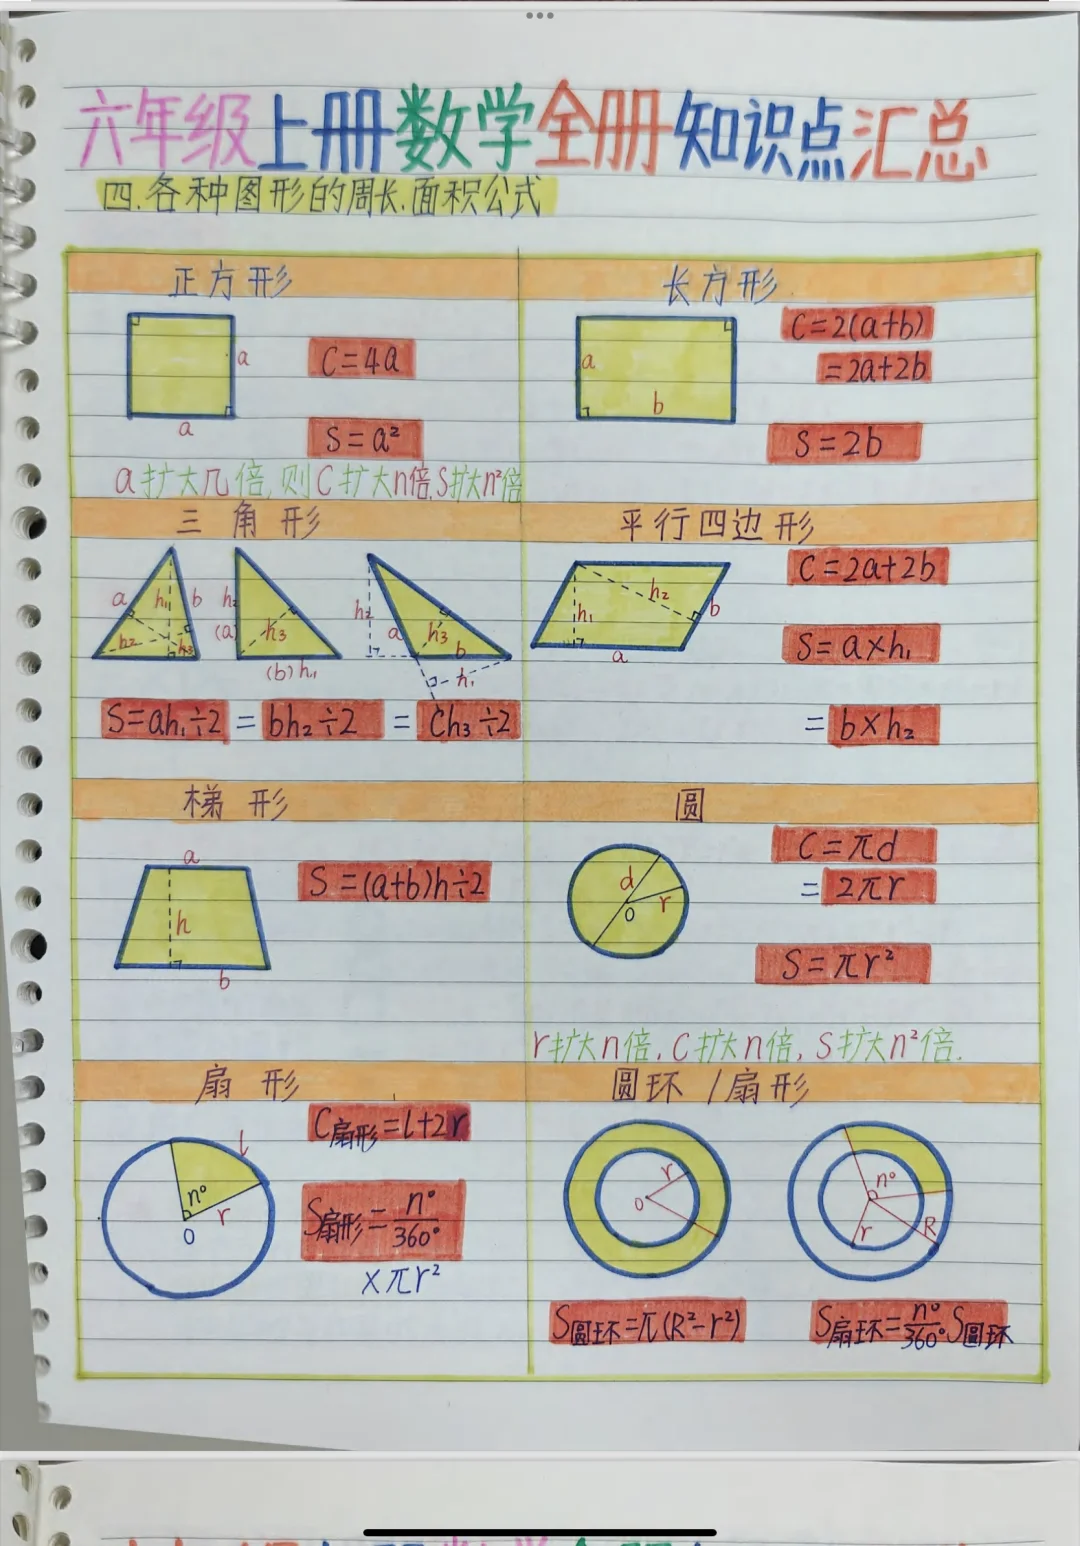 六年级上册数学全册知识点汇总
四.各种图形的周长.面积公式
正方形
a
a
C=4a
S=a²
a扩大几倍,则C扩大n倍,S扩大n²倍
长方形
a
b
C=2(a+b)
=2a+2b
S=2b
三角形
a h₁ b
h₂ h₃
h₂
(a) h₃
(b) h₁
h₂ a h₃ b
h₁
S=ah₁÷2 = bh₂÷2 = Ch₃÷2
平行四边形
h₁ h₂ b
a
C=2a+2b
S=a×h₁
=b×h₂
梯形
a
h
b
S=(a+b)h÷2
圆
d
r
O
C=πd
=2πr
S=πr²
r扩大n倍,C扩大n倍,S扩大n²倍.
扇形
l
n°
r
O
C扇形=l+2r
S扇形=n°/360°
×πr²
圆环/扇形
r
O
n°
r R
S圆环=π(R²-r²)
S扇环=n°/360°S圆环